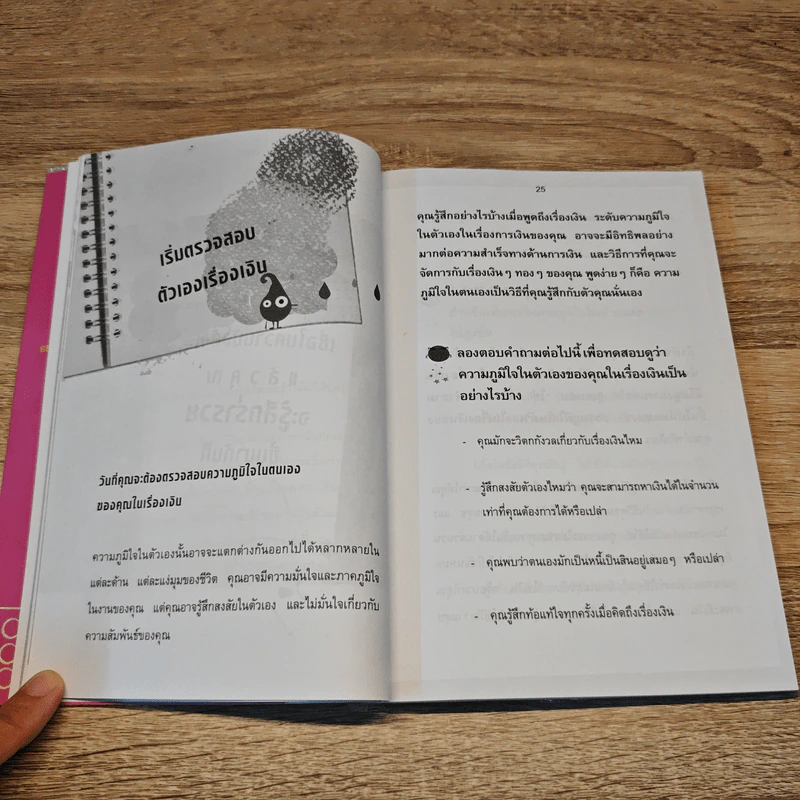 เริ่มตรวจสอบ
ตัวเองเรื่องเงิน
วันที่คุณจะต้องตรวจสอบความภูมิใจในตนเอง
ของคุณในเรื่องเงิน
ความภูมิใจในตัวเองนั้นอาจจะแตกต่างกันออกไปได้หลากหลายใน
แต่ละด้าน แต่ละแง่มุมของชีวิต คุณอาจมีความมั่นใจและภาคภูมิใจ
ในงานของคุณ แต่คุณอาจรู้สึกสงสัยในตัวเอง และไม่มั่นใจเกี่ยวกับ
ความสัมพันธ์ของคุณ
25
คุณรู้สึกอย่างไรบ้างเมื่อพูดถึงเรื่องเงิน ระดับความภูมิใจ
ในตัวเองในเรื่องการเงินของคุณ อาจจะมีอิทธิพลอย่าง
มากต่อความสำเร็จทางด้านการเงิน และวิธีการที่คุณจะ
จัดการกับเรื่องเงินๆ ทองๆ ของคุณ พูดง่ายๆ ก็คือ ความ
ภูมิใจในตนเองเป็นวิธีที่คุณรู้สึกกับตัวคุณนั่นเอง
ลองตอบคำถามต่อไปนี้ เพื่อทดสอบดูว่า
ความภูมิใจในตัวเองของคุณในเรื่องเงินเป็น
อย่างไรบ้าง
- คุณมักจะวิตกกังวลเกี่ยวกับเรื่องเงินไหม
- รู้สึกสงสัยตัวเองไหมว่า คุณจะสามารถหาเงินได้ในจำนวน
เท่าที่คุณต้องการได้หรือเปล่า
- คุณพบว่าตนเองมักเป็นหนี้เป็นสินอยู่เสมอๆ หรือเปล่า
- คุณรู้สึกท้อแท้ใจทุกครั้งเมื่อคิดถึงเรื่องเงิน